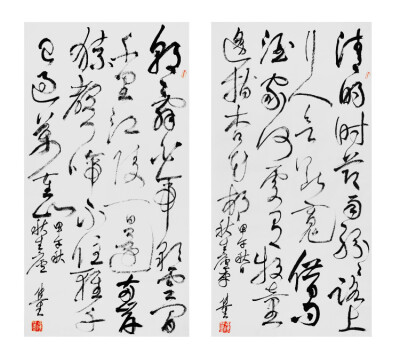 朝辞白帝彩云间
千里江陵一日还两岸
猿声啼不住轻舟
已过万重山
甲午秋
清明时节雨纷纷路上
行人欲断魂借问
酒家何处有牧童
遥指杏花村
甲午秋日